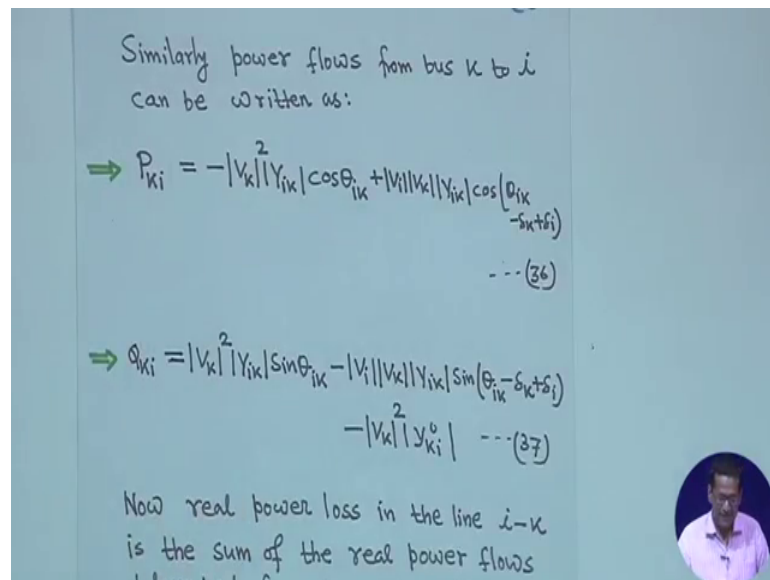 Similarly power flows from bus K to i
can be written as:
⇒ P_Ki = -|V_K|²|Y_iK|cosθ_iK + |V_i||V_K||Y_iK|cos(θ_iK
-δ_K+δ_i)
---(36)
⇒ Q_Ki = |V_K|²|Y_iK|sinθ_iK - |V_i||V_K||Y_iK|sin(θ_iK-δ_K+δ_i)
-|V_K|²|y°_Ki| ---(37)
Now real power loss in the line i-K
is the sum of the real power flows